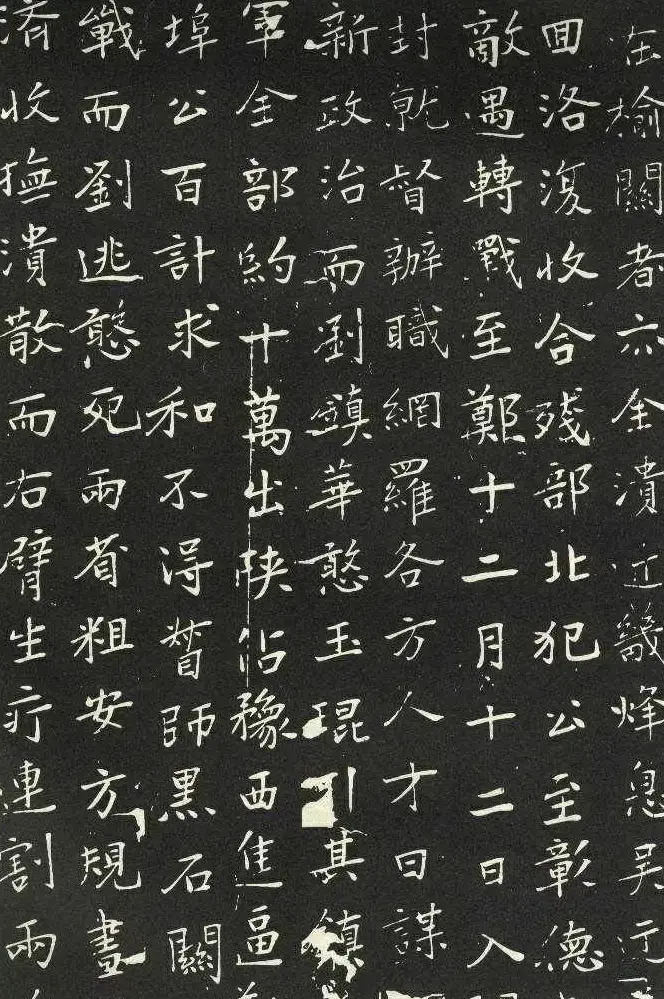 在榆關者亦全潰近畿烽息吳迂
回洛復收合殘部北犯公至彰德
敵遇轉戰至鄭十二月十二日入
封就督辦職網羅各方人才日謀
新政治而劉鎮華憨玉琨引其鎮
軍全部約十萬出陝佔豫西進逼
埠公百計求和不得督師黑石關
戰而劉逃憨死兩省粗安方規畫
濟收撫潰散而右臂生疔連割兩